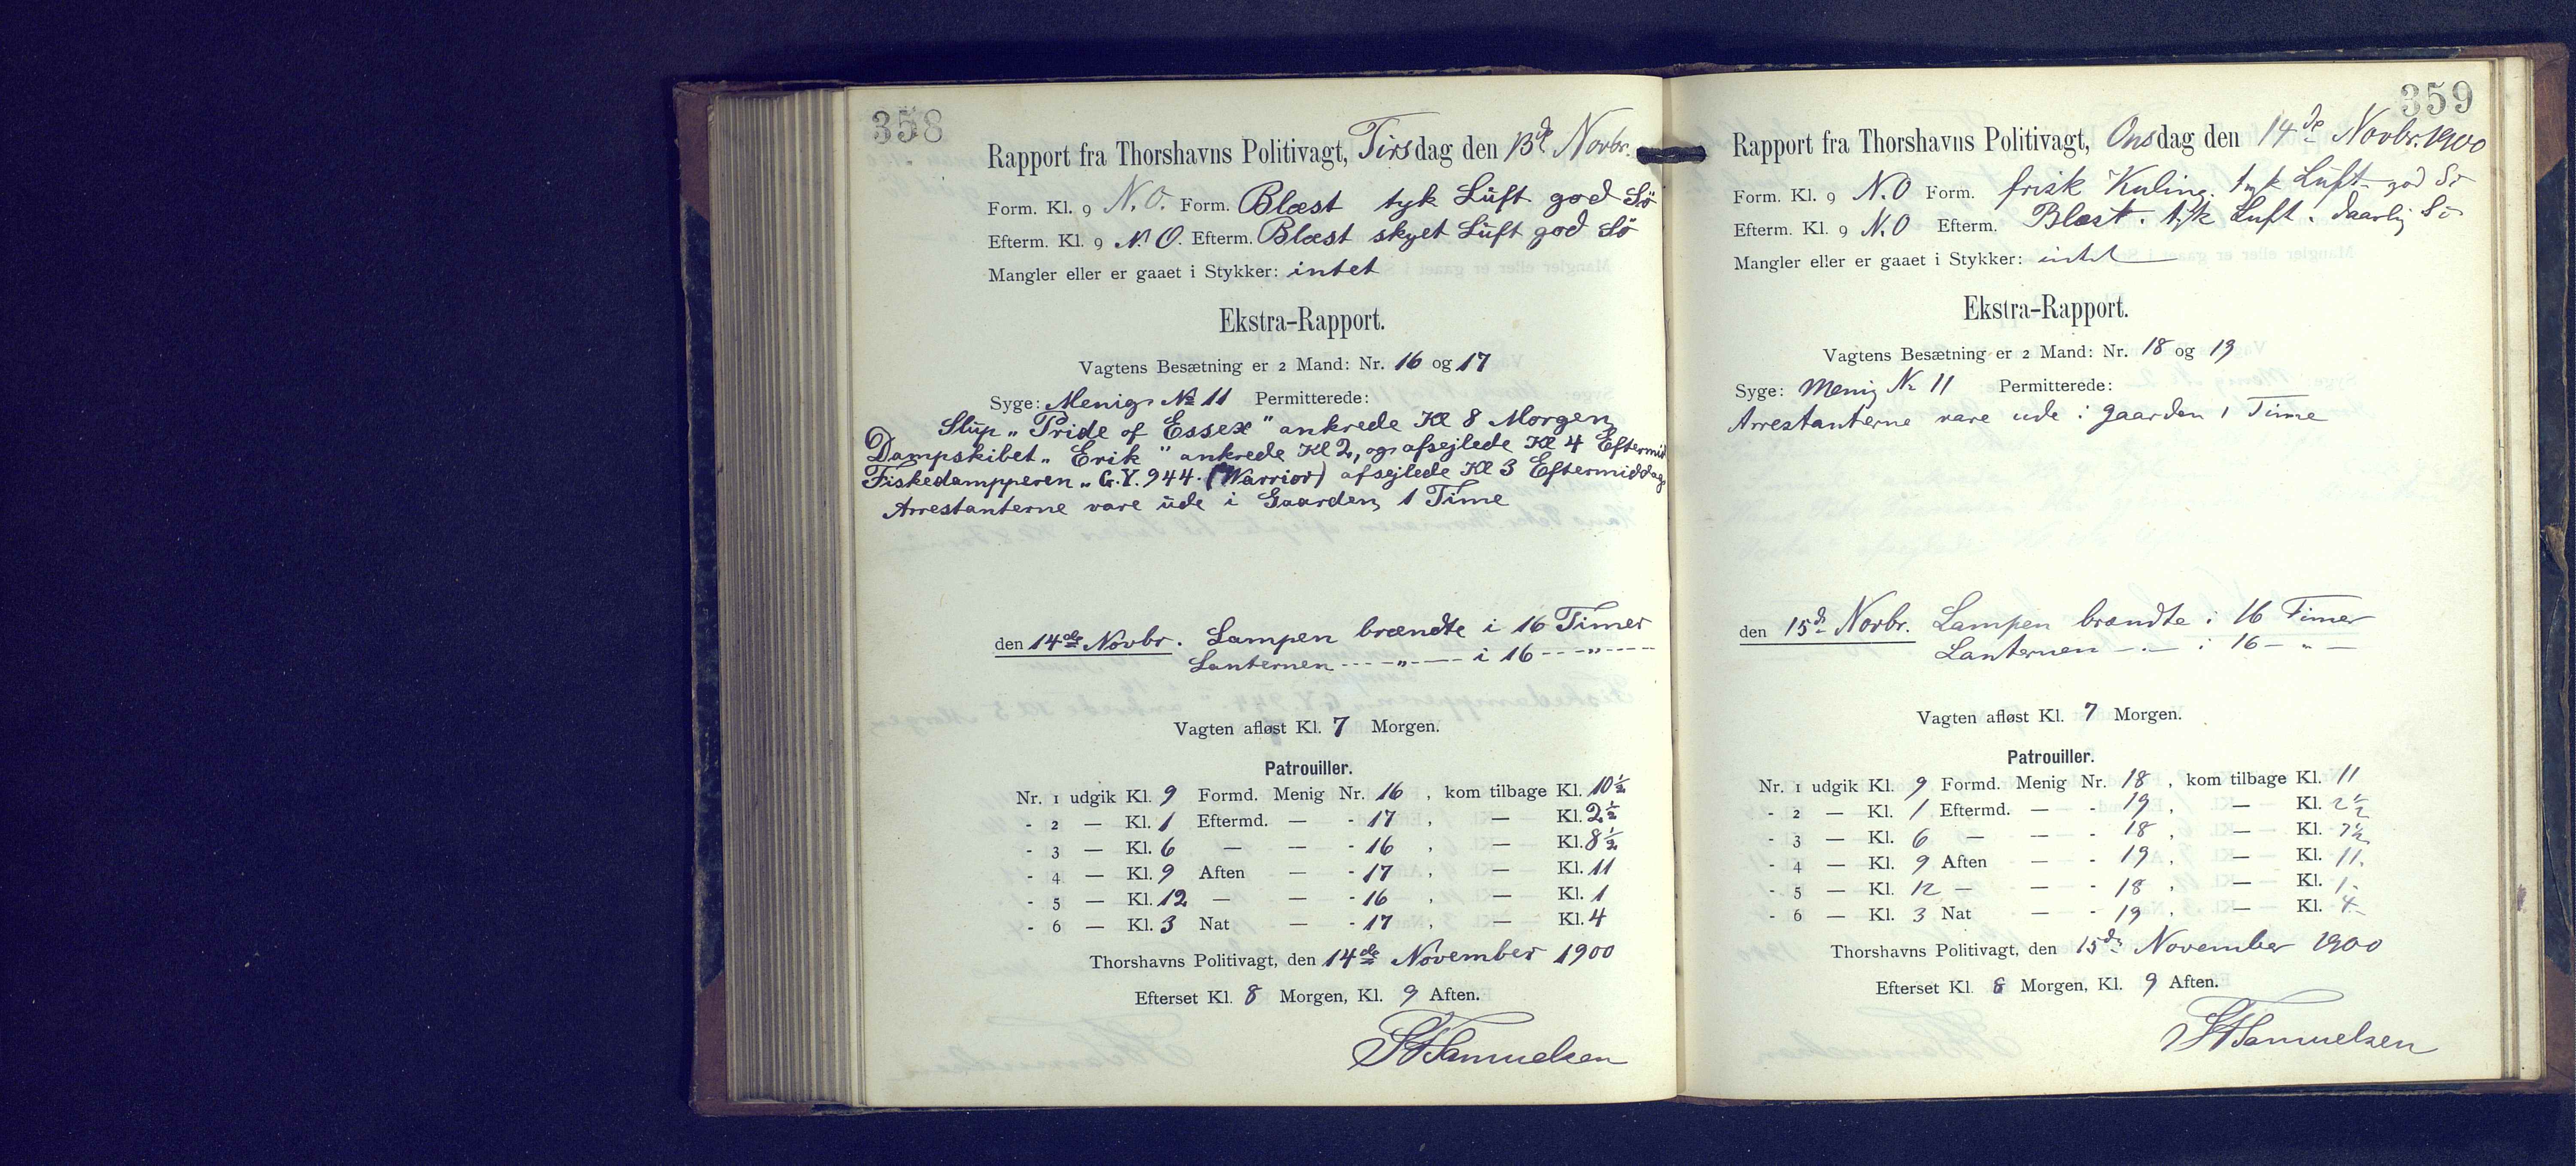 358
Rapport fra Thorshavns Politivagt, Tirsdag den 13de Novbr.
Form. Kl. 9 N.O. Form. Blæst tyk Luft god Sö
Efterm. Kl. 9 N.O. Efterm. Blæst skyet Luft god Sö
Mangler eller er gaaet i Stykker: intet
Ekstra-Rapport.
Vagtens Besætning er 2 Mand: Nr. 16 og 17
Syge: Menig № 11 Permitterede:
Slup „Pride of Essex" ankrede Kl 8 Morgen
Dampskibet „Erik" ankrede Kl 2, og afsejlede Kl 4 Eftermid
Fiskedampperen „G.Y. 944. (Warrior) afsejlede Kl 3 Eftermiddag
Arrestanterne vare ude i Gaarden 1 Time
den 14de Novbr. Lampen brændte i 16 Timer
Lanternen ---„--- i 16 ---„---
Vagten afløst Kl. 7 Morgen.
Patrouiller.
Nr. 1 udgik Kl. 9 Formd. Menig Nr. 16 , kom tilbage Kl. 10½
- 2 — Kl. 1 Eftermd. — - 17 , — Kl. 2½
- 3 — Kl. 6 — — - 16 , — Kl. 8½
- 4 — Kl. 9 Aften — - 17 , — Kl. 11
- 5 — Kl. 12 — — - 16 , — Kl. 1
- 6 — Kl. 3 Nat — - 17 , — Kl. 4
Thorshavns Politivagt, den 14de November 1900
Efterset Kl. 8 Morgen, Kl. 9 Aften.
Samuelsen
359
Rapport fra Thorshavns Politivagt, Onsdag den 14de Novbr. 1900
Form. Kl. 9 N.O Form. frisk Kuling. tyk Luft god Sö
Efterm. Kl. 9 N.O Efterm. Blæst. tyk Luft. daarlig Sö
Mangler eller er gaaet i Stykker: intet
Ekstra-Rapport.
Vagtens Besætning er 2 Mand: Nr. 18 og 19
Syge: Menig Nr 11 Permitterede:
Arrestanterne vare ude i gaarden 1 Time
den 15de Novbr. Lampen brændte i 16 Timer
Lanternen — . — i 16 — „ —
Vagten afløst Kl. 7 Morgen.
Patrouiller.
Nr. 1 udgik Kl. 9 Formd. Menig Nr. 18 , kom tilbage Kl. 11
- 2 — Kl. 1 Eftermd. — - 19 , — Kl. 2½
- 3 — Kl. 6 — — - 18 , — Kl. 7½
- 4 — Kl. 9 Aften — - 19 , — Kl. 11.
- 5 — Kl. 12 — — - 18 , — Kl. 1-
- 6 — Kl. 3 Nat — - 19 , — Kl. 4-
Thorshavns Politivagt, den 15de November 1900
Efterset Kl. 8 Morgen, Kl. 9 Aften.
Samuelsen